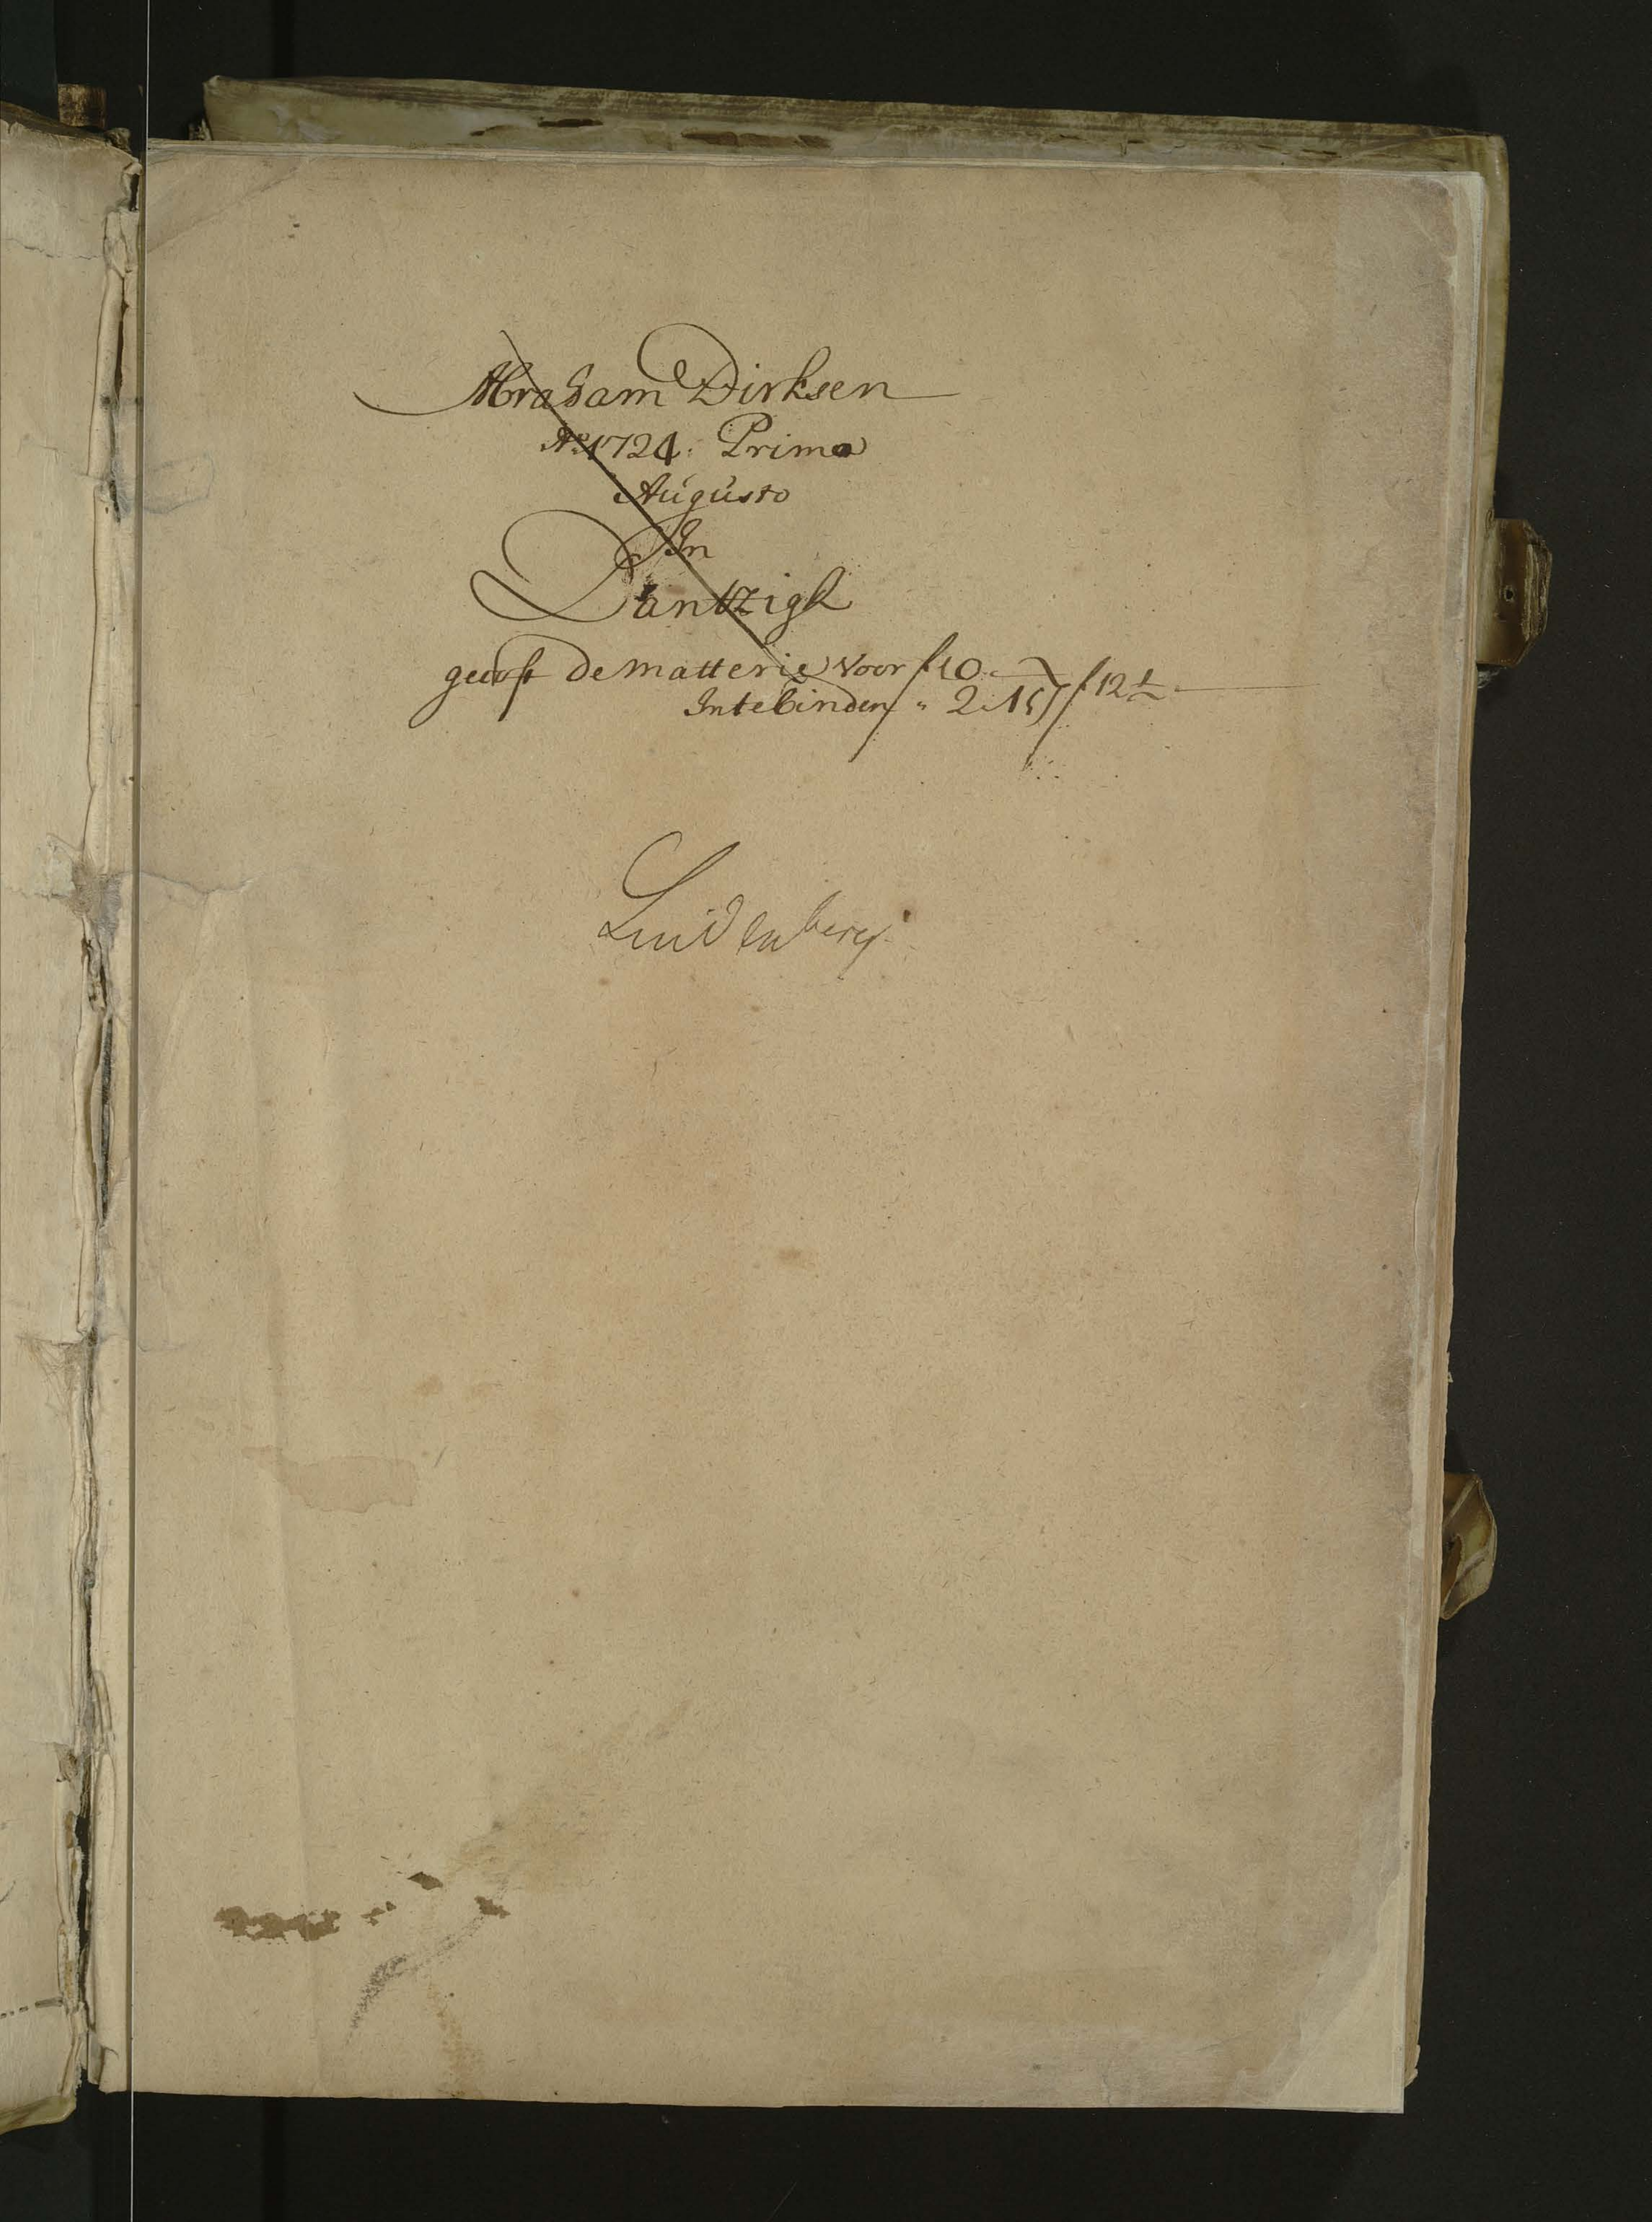 Abraham Dirksen
Ao 1724: Prima
Augusto
In
Dantzigk
de matterie voor f 10.
In te binden " 2.15 f 12½
Lindenberg